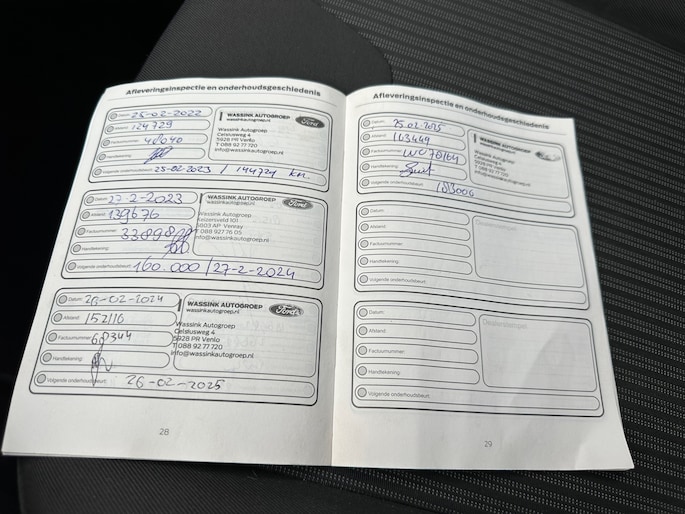 Afleveringsinspectie en onderhoudsgeschiedenis
Datum: 25-02-2022
Afstand: 124729
Factuurnummer: 48640
Handtekening:
Volgende onderhoudsbeurt: 25-02-2023 / 144729 km.
WASSINK AUTOGROEP
wassinkautogroep.nl
Ford
Wassink Autogroep
Celsiusweg 4
5928 PR Venlo
T 088 92 77 720
info@wassinkautogroep.nl
Datum: 27-2-2023
Afstand: 139676
Factuurnummer: 33898
Handtekening:
Volgende onderhoudsbeurt: 160.000 / 27-2-2024
WASSINK AUTOGROEP
wassinkautogroep.nl
Ford
Wassink Autogroep
Keizersveld 101
5803 AP Venray
T 088 927 76 05
info@wassinkautogroep.nl
Datum: 26-02-2024
Afstand: 152116
Factuurnummer: 68344
Handtekening:
Volgende onderhoudsbeurt: 26-02-2025
WASSINK AUTOGROEP
wassinkautogroep.nl
Ford
Wassink Autogroep
Celsiusweg 4
5928 PR Venlo
T 088 92 77 720
info@wassinkautogroep.nl
28
Afleveringsinspectie en onderhoudsgeschiedenis
Datum: 25-02-2025
Afstand: 163449
Factuurnummer:
Handtekening:
Volgende onderhoudsbeurt: 183000
WASSINK AUTOGROEP
wassinkautogroep.nl
Ford
Wassink Autogroep
Celsiusweg 4
5928 PR Venlo
T 088 92 77 720
info@wassinkautogroep.nl
Datum:
Afstand:
Factuurnummer:
Handtekening:
Volgende onderhoudsbeurt:
Datum:
Afstand:
Factuurnummer:
Handtekening:
Volgende onderhoudsbeurt:
29